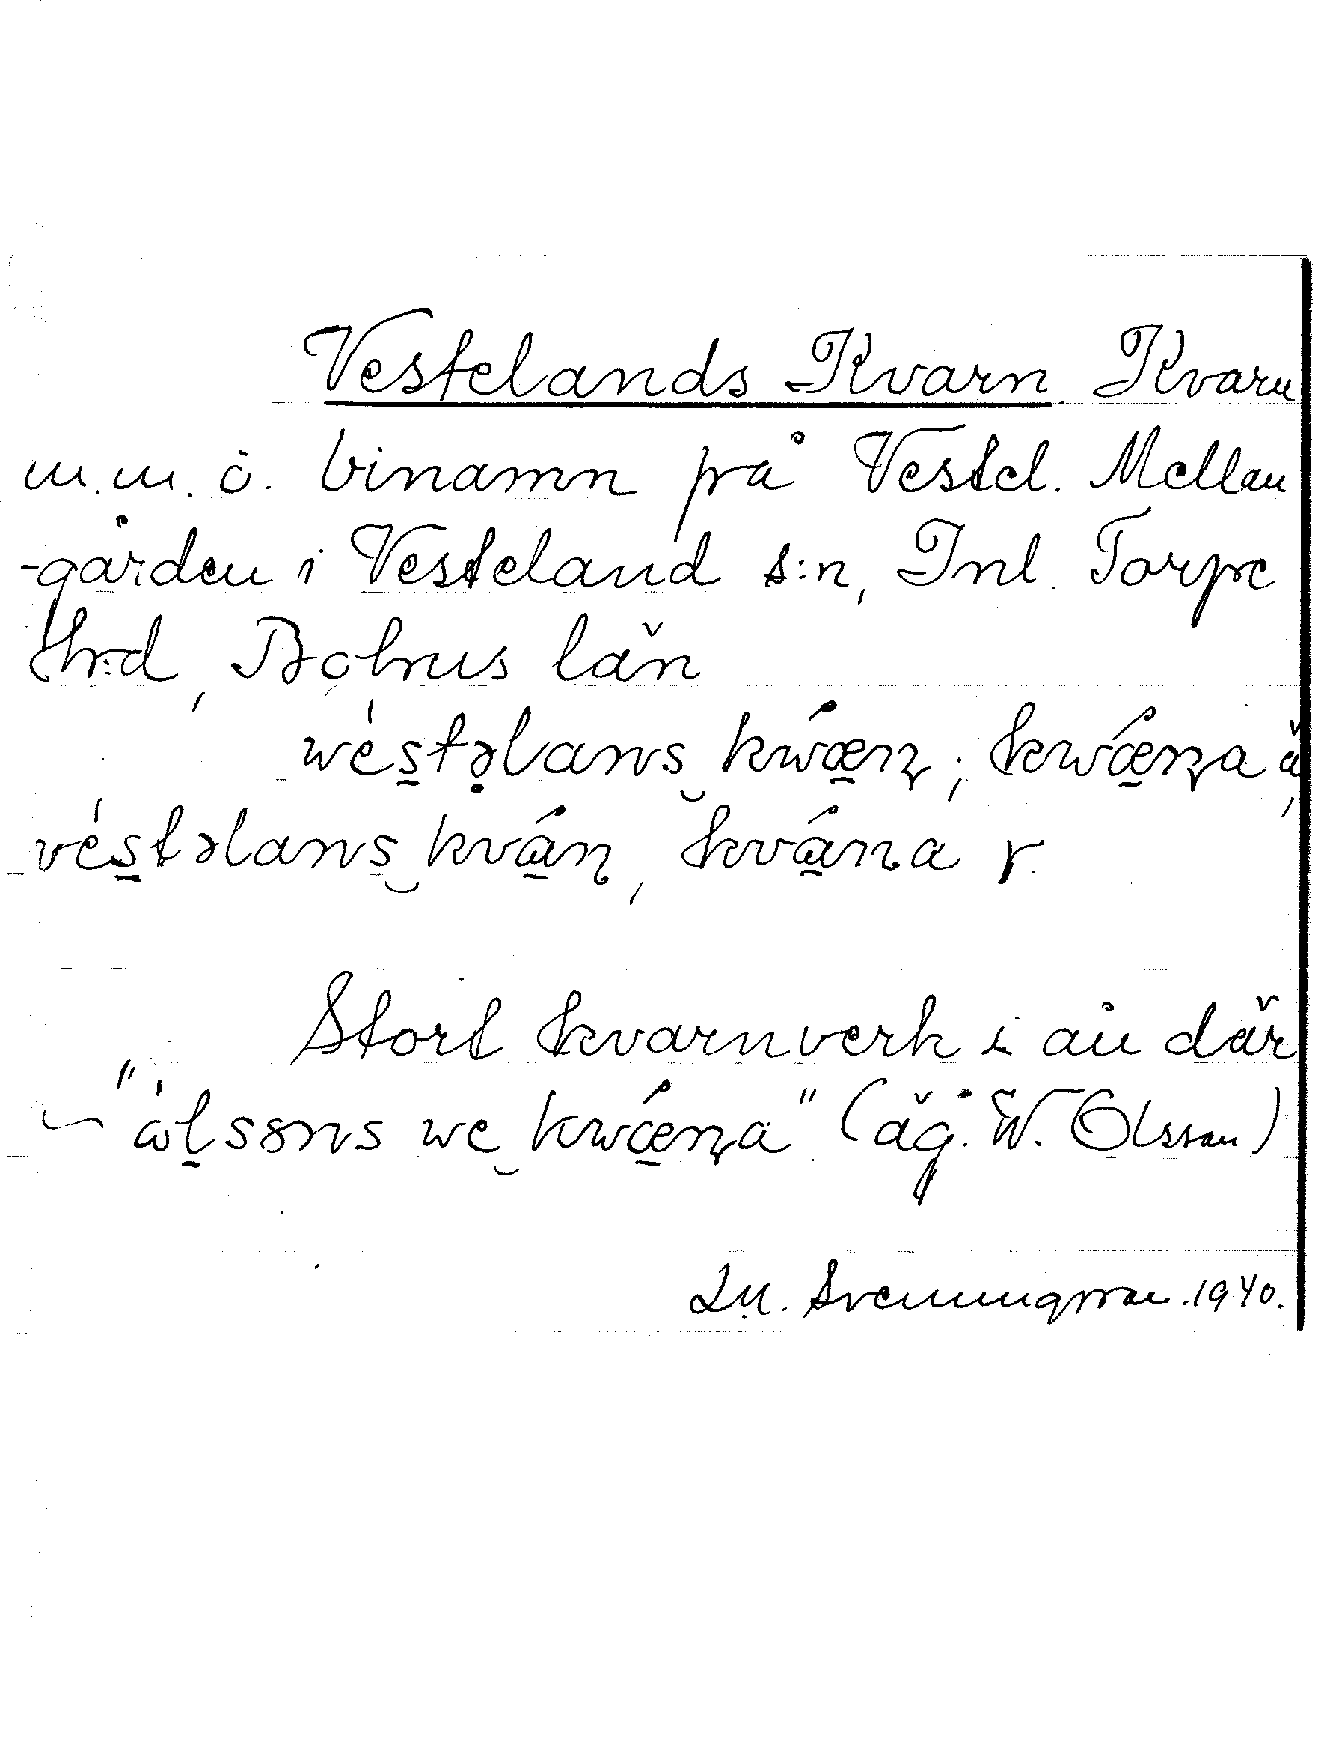 Vestelands Kvarn Kvarn
m.m. ö. binamn på Vestel. Mellan
-gården i Vesteland s:n, Inl. Torpe
hrd, Bohus län
wéstəlans kwǽn; kwǽna ä,
véstəlans kván, kvána r.
Stort kvarnverk i ån där
"ὼlssɷns we kwǽna" (äg. W. Olsson)
1940.